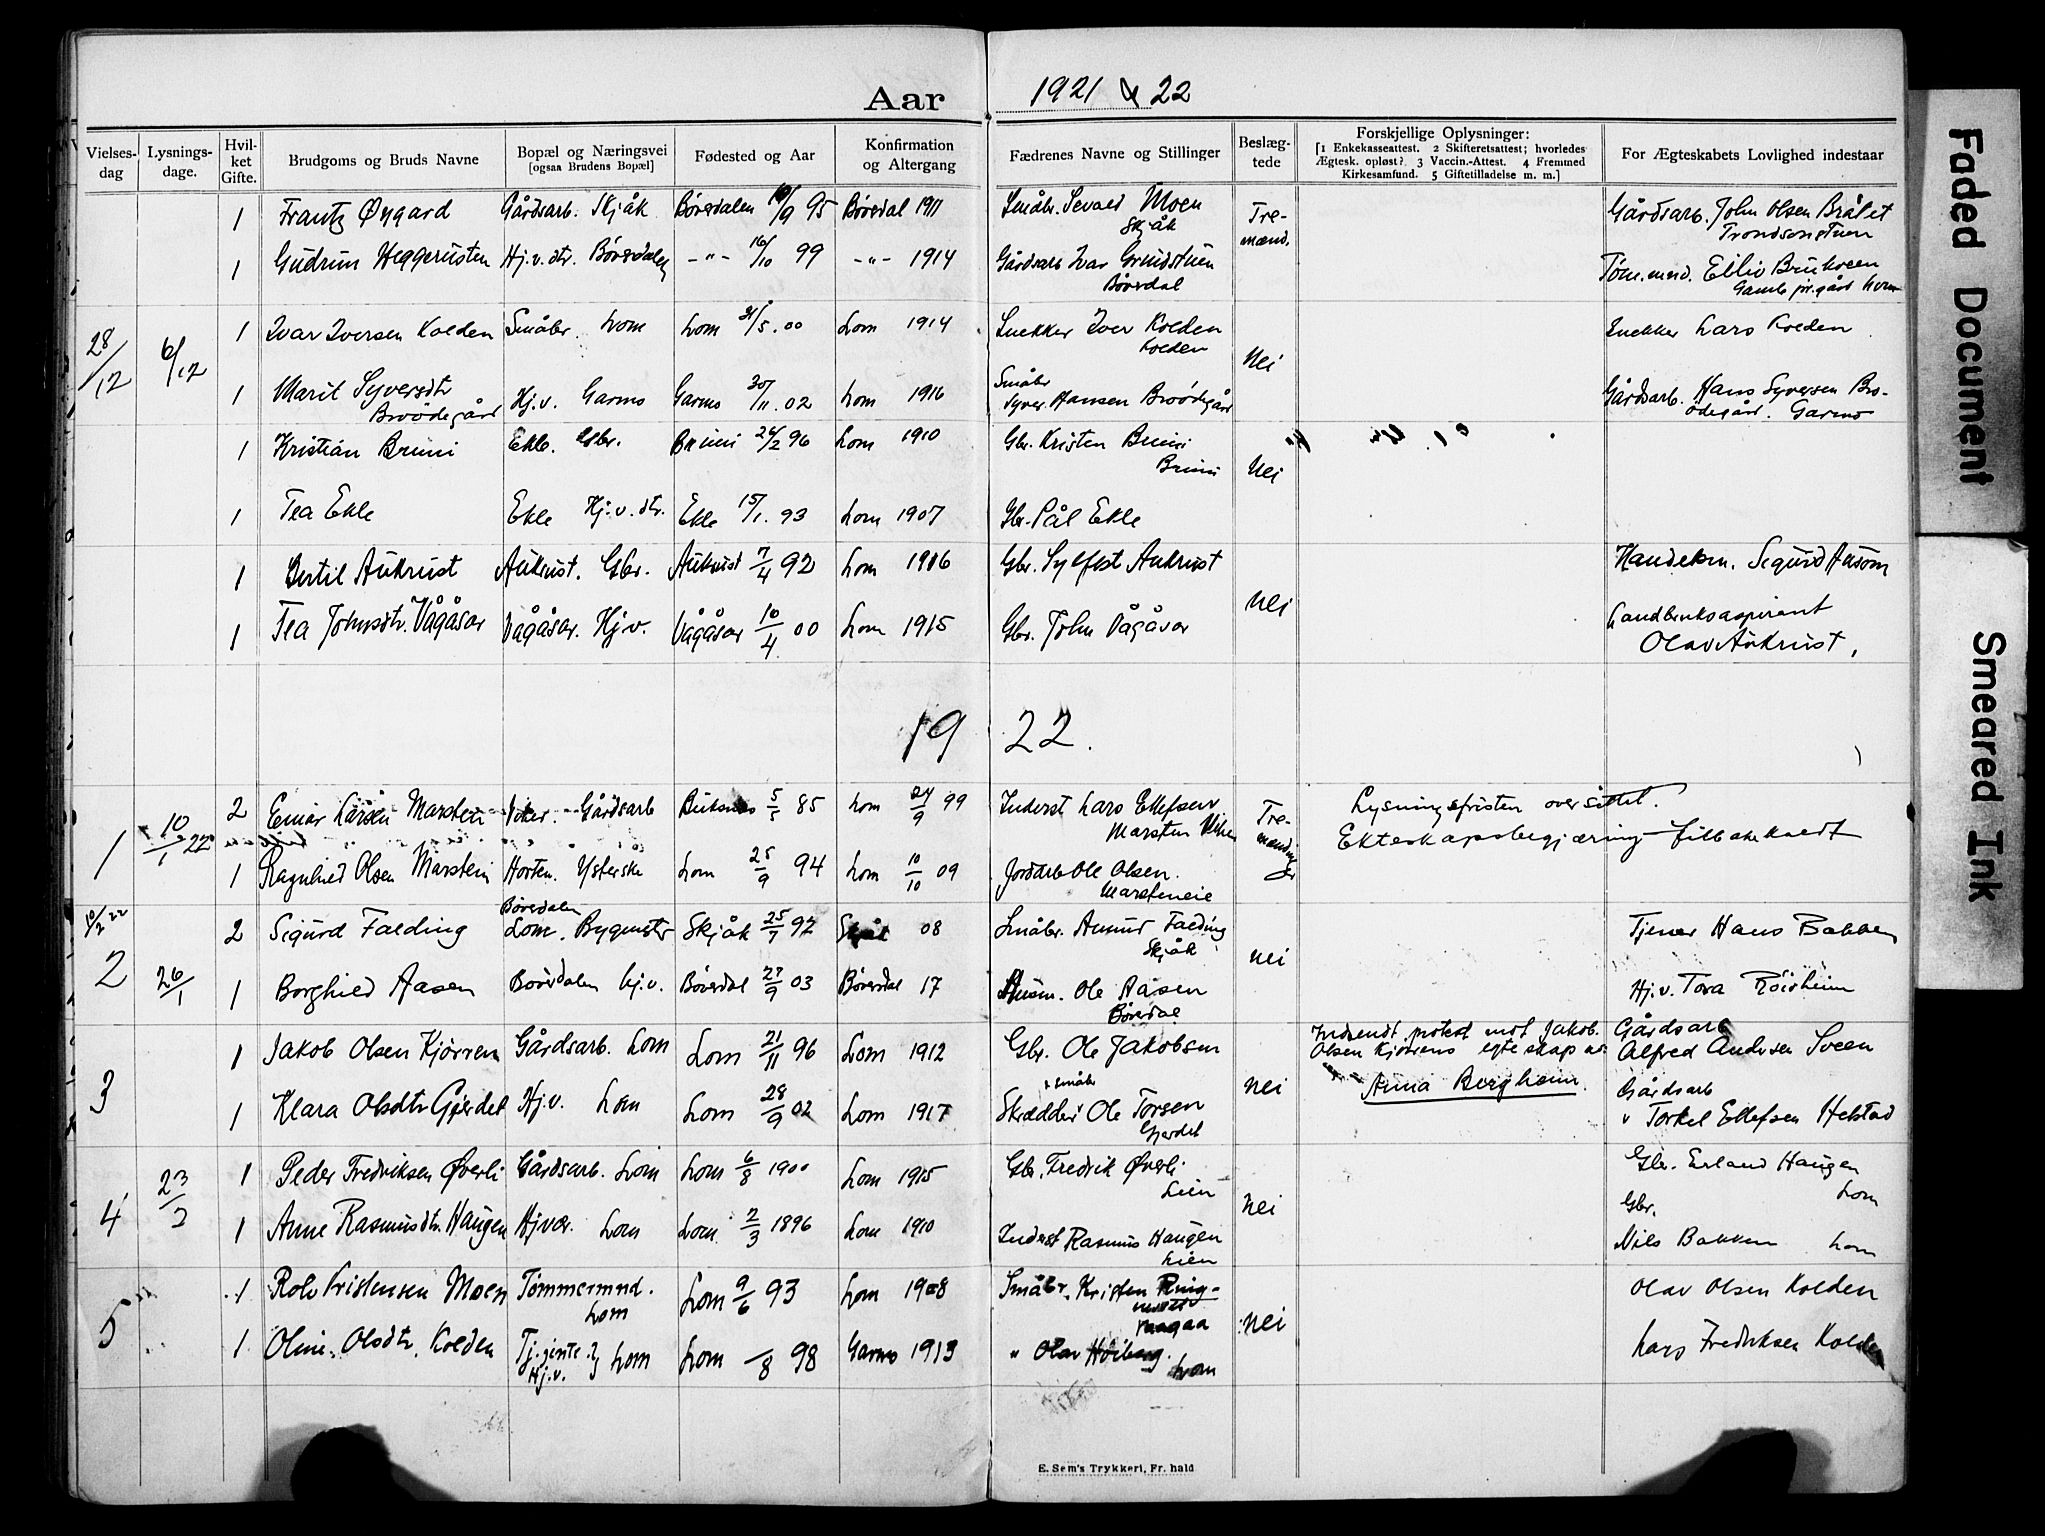 Aar 1921 & 22
Vielses-dag | Lysnings-dage. | Hvil-ket Gifte. | Brudgoms og Bruds Navne | Bopæl og Næringsvei [ogsaa Brudens Bopæl] | Fødested og Aar | Konfirmation og Altergang | Fædrenes Navne og Stillinger | Beslæg-tede | Forskjellige Oplysninger: [1 Enkekasseattest. 2 Skifteretsattest; hvorledes Ægtesk. opløst? 3 Vaccin.-Attest. 4 Fremmed Kirkesamfund. 5 Giftetilladelse m. m.] | For Ægteskabets Lovlighed indestaar
1 Frantz Øygard Gårdsarb. Skjåk Bøverdalen /9 95 Bøverdal 1911 Småbr. Sevald Moen Skjåk Tre-mænd. Gårdsarb. John Olsen Bråtet Trondsenstuen
1 Gudrun Heggerusten Hj.v.dtr. Bøverdalen -"- 16/10 99 -"- 1914 Gårdsarb Ivar Grindstuen Bøverdal Tøm.mnd.
28/12 6/12 1 Ivar Iversen Kolden Småbr. Lom Lom 31/5.00 Lom 1914 Snekker Iver Kolden Kolden Nei Snekker Lars Kolden
1 Marit Syversdtr Broødegård Hj.v. Garmo Garmo 30/11.02 Lom 1916 Småbr Syver Hansen Broødegård Gårdsarb. Hans Syversen Bro-ødegård. Garmo
1 Kristian Brimi Ekle. Gbr. Brimi 26/2 96 Lom 1910 Gbr. Kristen Brimi Brimi Nei
1 Tea Ekle Ekle Hj.v.dtr. Ekle 15/1. 93 Lom 1907 Gbr. Pål Ekle
1 Bertil Aukrust Aukrust. Gbr. Aukrust 7/4 92 Lom 1906 Gbr. Sylfest Aukrust Nei Handelsm. Sigurd Aasom
1 Tea Johnsdtr. Vågåsar Vågåsar. Hj.v. Vågåsar 10/4 00 Lom 1915 Gbr. John Vågåsar Landbruksaspirant Olav Aukrust,
1922.
1 10/1 22 2 Einar Larsen Marstein Gårdsarb Buksnes 5/5 85 Lom 24/9 99 Inderst Lars Ellefsen Marstein Tre-mænding er Lysningsfristen oversittet. Ekteskapsbegjæring tilbakekaldt
1 Ragnhild Olsen Marstein Horten. Ysterske Lom 25/9 94 Lom 10/10 09 Jordarb Ole Olsen. Marsteneie
10/2 22 2 26/1 2 Sigurd Falding Bøverdalen Lom. Bygmstr Skjåk 25/7 92 Skjåk 08 Småbr. Amund Falding Skjåk nei Tjener Hans Bakken
1 Borghild Aasen Bøverdalen hj.v. Bøverdal 27/9 03 Bøverdal 17 Husm. Ole Aasen Bøverdal Hj.v. Tora Røisheim
3 1 Jakob Olsen Kjørren Gårdsarb. Lom Lom 21/11 96 Lom 1912 Gbr. Ole Jakobsen nei Indsendt protest mot Jakob Olsen Kjørrens egteskap av Anna Bergheim. Gårdsarb Alfred Andersen Sveen
1 Klara Olsdtr Gjerdet Hj.v. Lom Lom 28/9 02 Lom 1917 & småbr Skrædder Ole Torsen Gjerdet Gårdsarb " Torkel Ellefsen Helstad
4 23/2 1 Peder Fredriksen Øverli Gårdsarb. Lom Lom 6/8 1900 Lom 1915 Gbr. Fredrik Øverli Lien nei Gbr. Erland Haugen Lom
1 Anne Rasmusdtr. Haugen Hjvær. Lom Lom. 2/3 1896 Lom 1910 Inderst Rasmus Haugen Lien Gbr. Nils Bakken Lom
5 1 Rolv Kristensen Moen Tømmermnd. Lom Lom 9/6 93 Lom 1908 Småbr. Kristen Ring- Vaagaa nei Olav Olsen Kolden
1 Oline Olsdtr. Kolden Tj.jente Hj.v. Lom Lom /8 98 Garmo 1913 " Olav Høiberg. Lom Lars Fredriksen Kolden
E. Sem's Trykkeri, Fr. hald
Faded Document
Smeared Ink